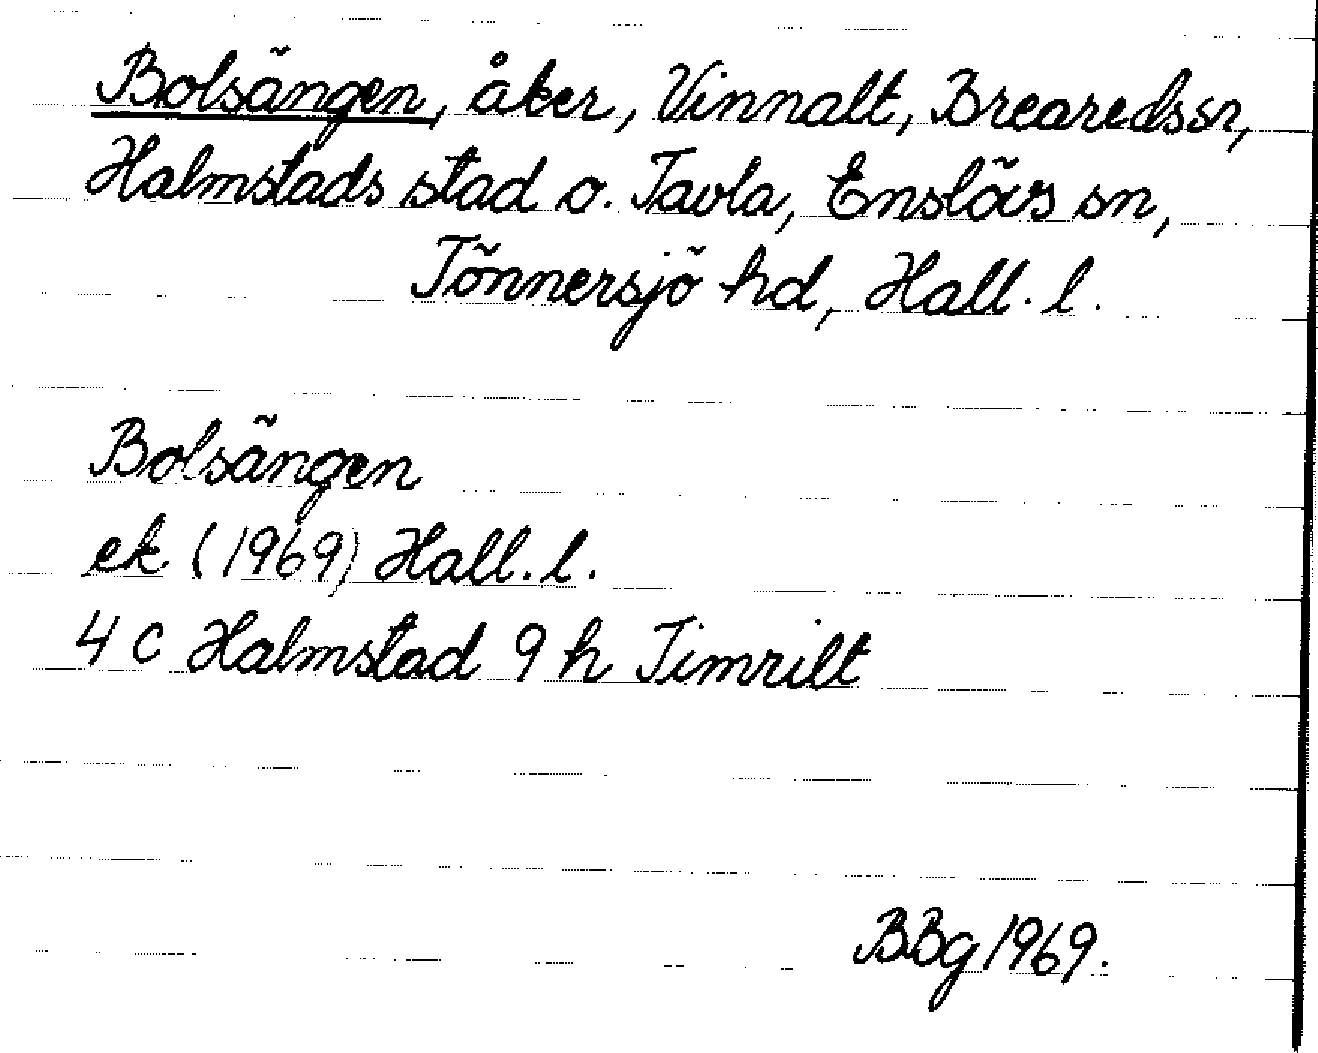 Bolsängen, åker, Vinnalt, Breareds sn,
Halmstads stad o. Tavla, Enslövs sn,
Tönnersjö hd, Hall. l.
Bolsängen
ek (1969) Hall. l.
4 C Halmstad 9 h Timrilt
BBg 1969.